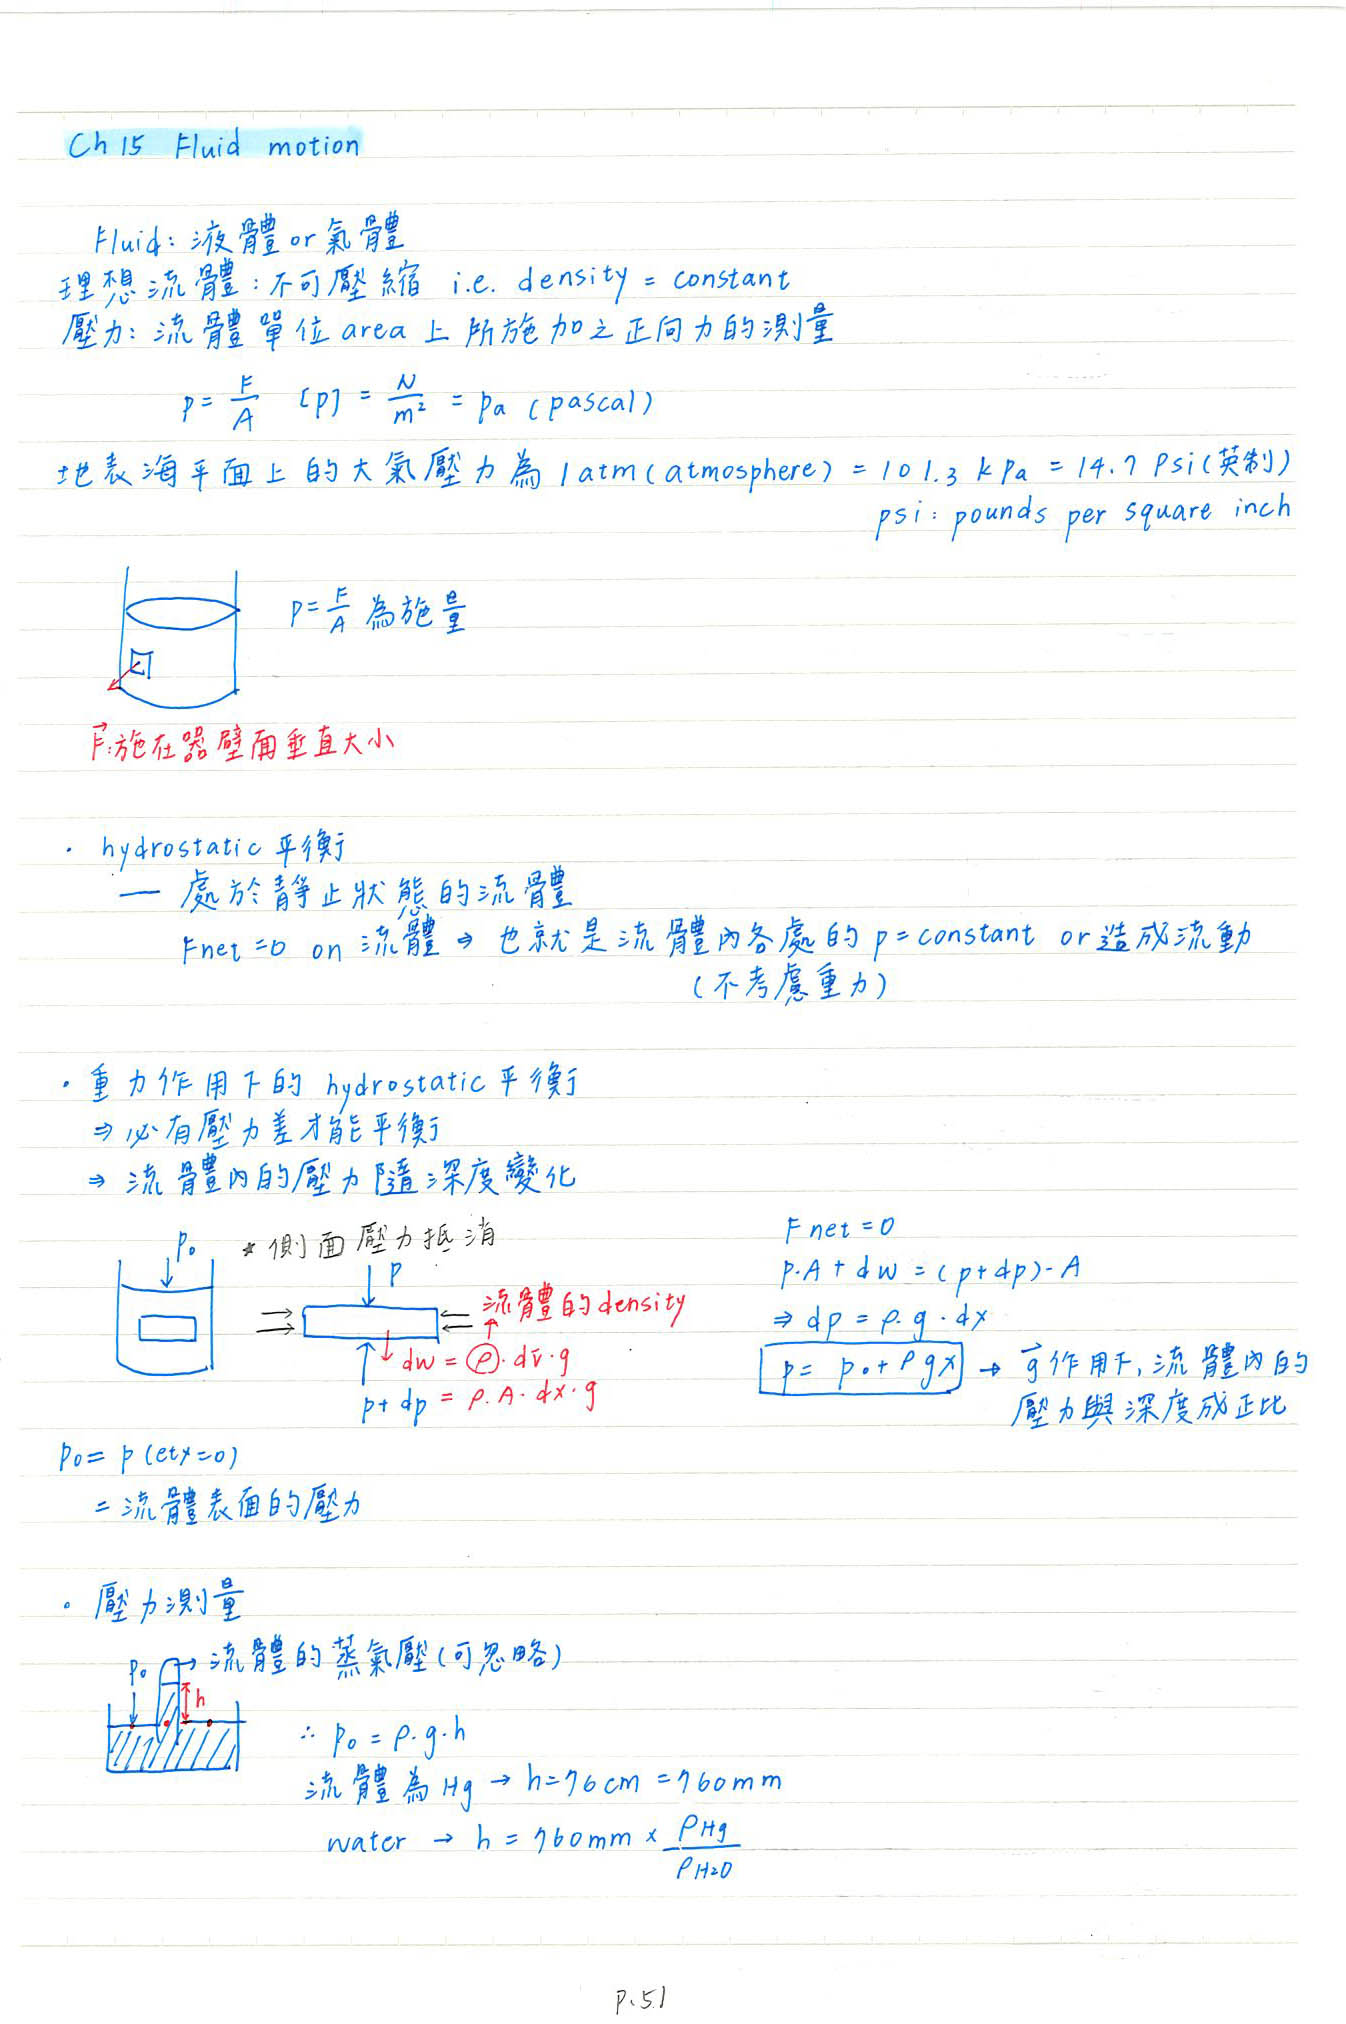 Ch 15 Fluid motion
Fluid: 液體 or 氣體
理想流體: 不可壓縮 i.e. density = constant
壓力: 流體單位 area 上所施加之正向力的測量
p = F/A [p] = N/m² = Pa (pascal)
地表海平面上的大氣壓力為 1 atm (atmosphere) = 101.3 kPa = 14.7 Psi (英制)
psi: pounds per square inch
P = F/A 為施量
F⃗: 施在器壁面垂直大小
· hydrostatic 平衡
— 處於靜止狀態的流體
Fnet = 0 on 流體 ⇒ 也就是流體內各處的 p = constant or 造成流動
(不考慮重力)
· 重力作用下的 hydrostatic 平衡
⇒ 必有壓力差才能平衡
⇒ 流體內的壓力隨深度變化
P₀ * 側面壓力抵消
P
流體的 density
dw = ρ·dV·g
p + dp = ρ·A·dx·g
Fnet = 0
P·A + dw = (p+dp)·A
⇒ dp = ρ·g·dx
p = p₀ + ρgx → g⃗ 作用下, 流體內的
壓力與深度成正比
P₀ = p (at x=0)
= 流體表面的壓力
· 壓力測量
P₀ → 流體的蒸氣壓 (可忽略)
h
∴ p₀ = ρ·g·h
流體為 Hg → h = 76 cm = 760 mm
water → h = 760 mm × ρHg/ρH₂O
P.51